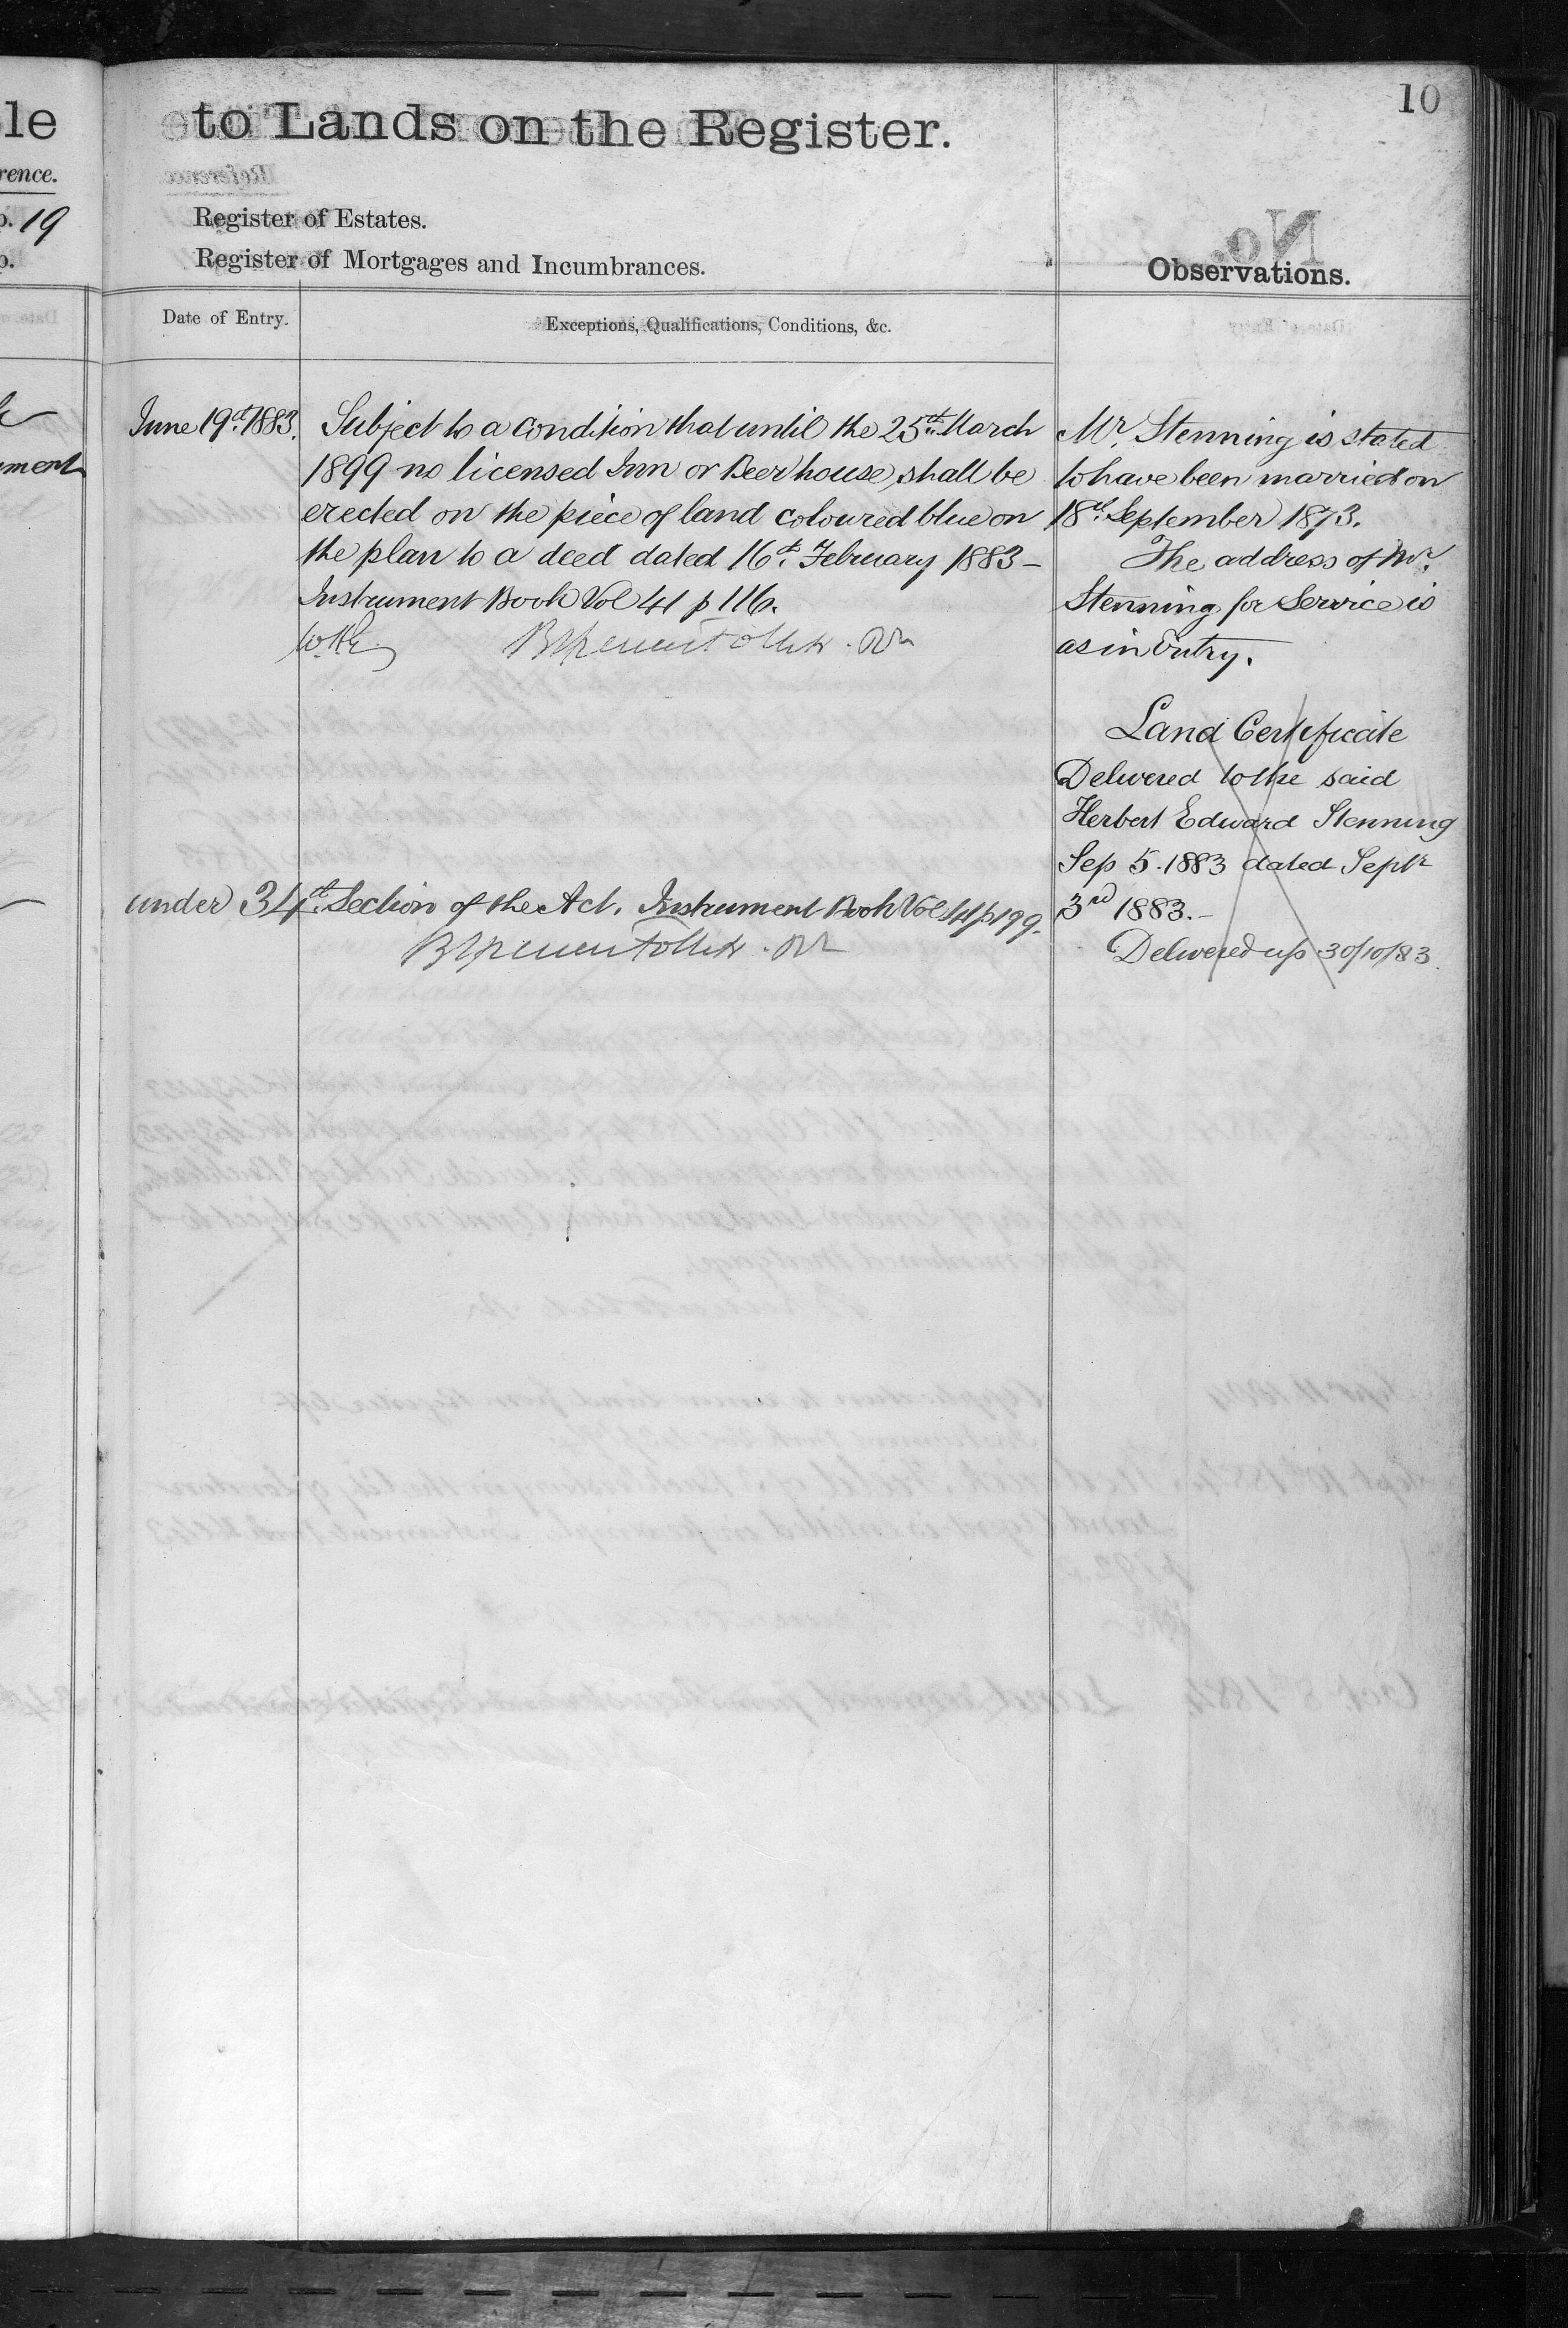 10
le
to Lands on the Register.
rence.
Register of Estates.
o. 19
Register of Mortgages and Incumbrances.
o.
Observations.
Date of Entry.
Exceptions, Qualifications, Conditions, &c.
June 19th 1883.
Subject to a condition that until the 25th March
1899 no licensed Inn or Beerhouse shall be
erected on the piece of land coloured blue on
the plan to a deed dated 16th February 1883 –
Instrument Book Vol 41 p 116.
ment
under 34th Section of the Act. Instrument Book Vol 41 p 199.
Mr. Stenning is stated
to have been married on
18th September 1873.
The address of Mr.
Stenning for Service is
as in Entry.
Land Certificate
Delivered to the said
Herbert Edward Stenning
Sep 5. 1883 dated Septr
3rd 1883. –
Delivered up 30/10/83.